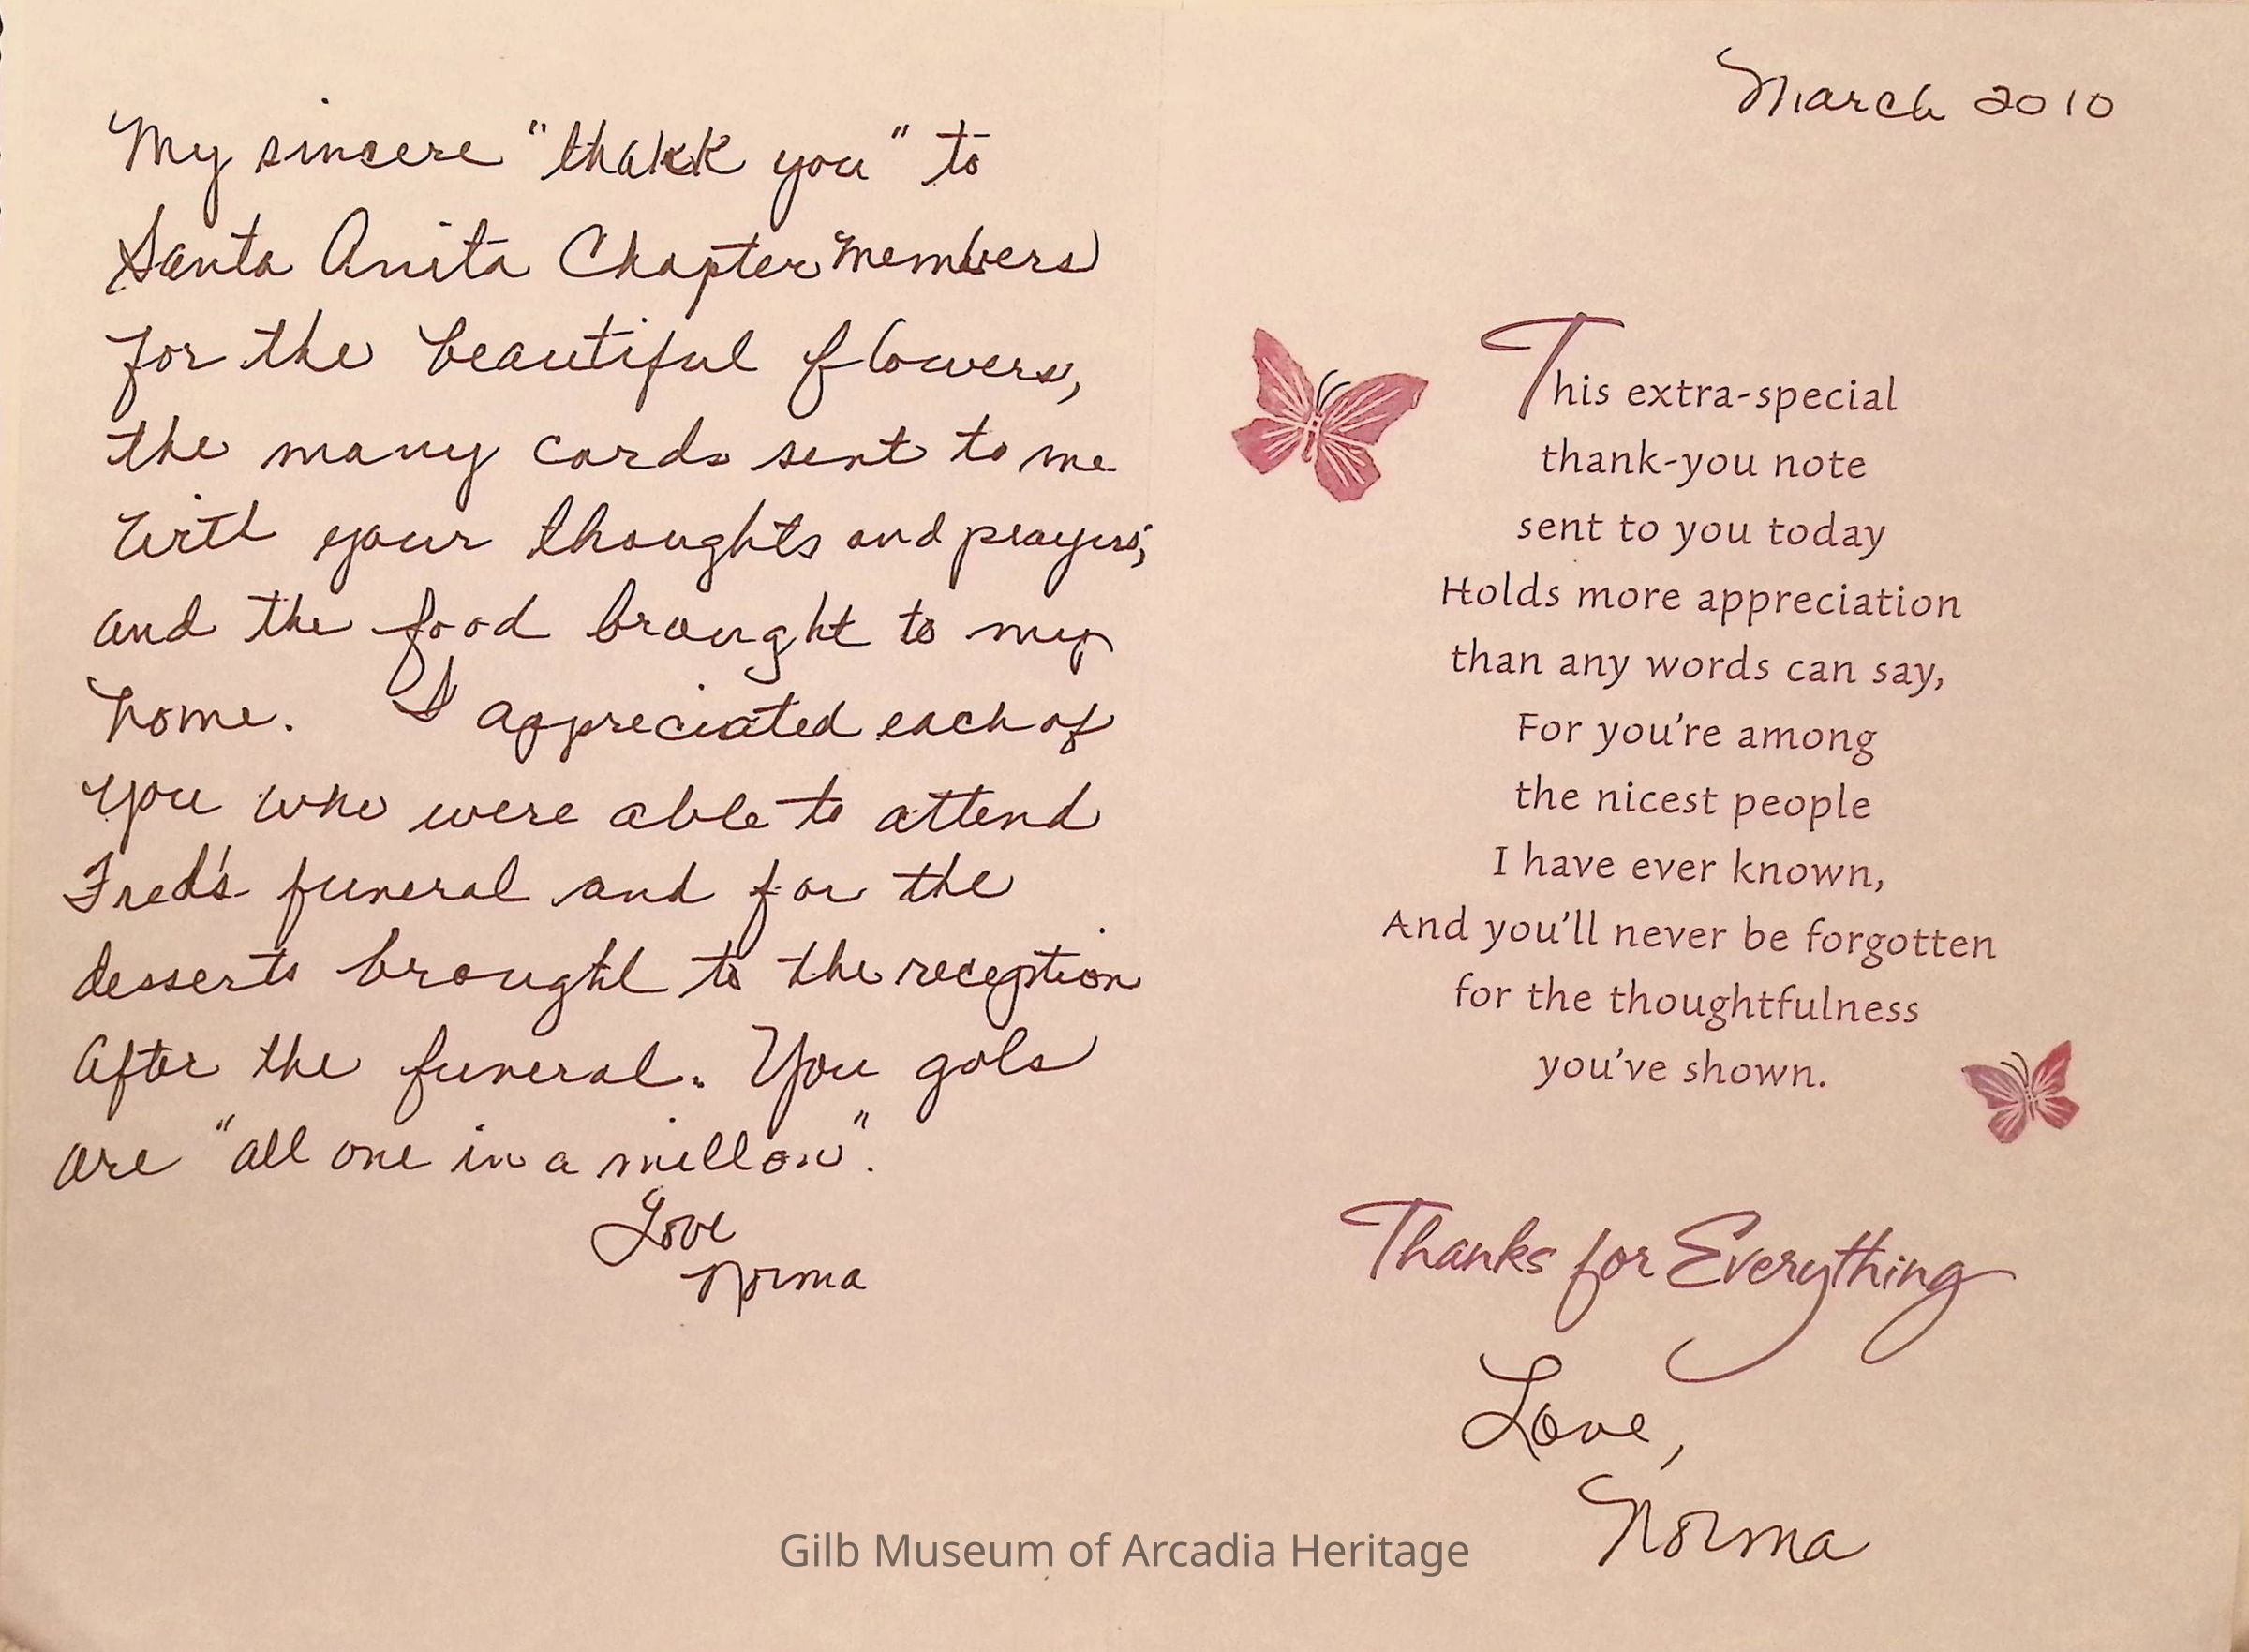 My sincere "thakk you" to
Santa Anita Chapter members
for the beautiful flowers,
the many cards sent to me
with your thoughts and prayers,
and the food brought to my
home. I appreciated each of
you who were able to attend
Fred's funeral and for the
desserts brought to the reception
after the funeral. You gals
are "all one in a millon".
Love
Norma
March 2010
This extra-special
thank-you note
sent to you today
Holds more appreciation
than any words can say,
For you're among
the nicest people
I have ever known,
And you'll never be forgotten
for the thoughtfulness
you've shown.
Thanks for Everything
Love,
Norma
Gilb Museum of Arcadia Heritage